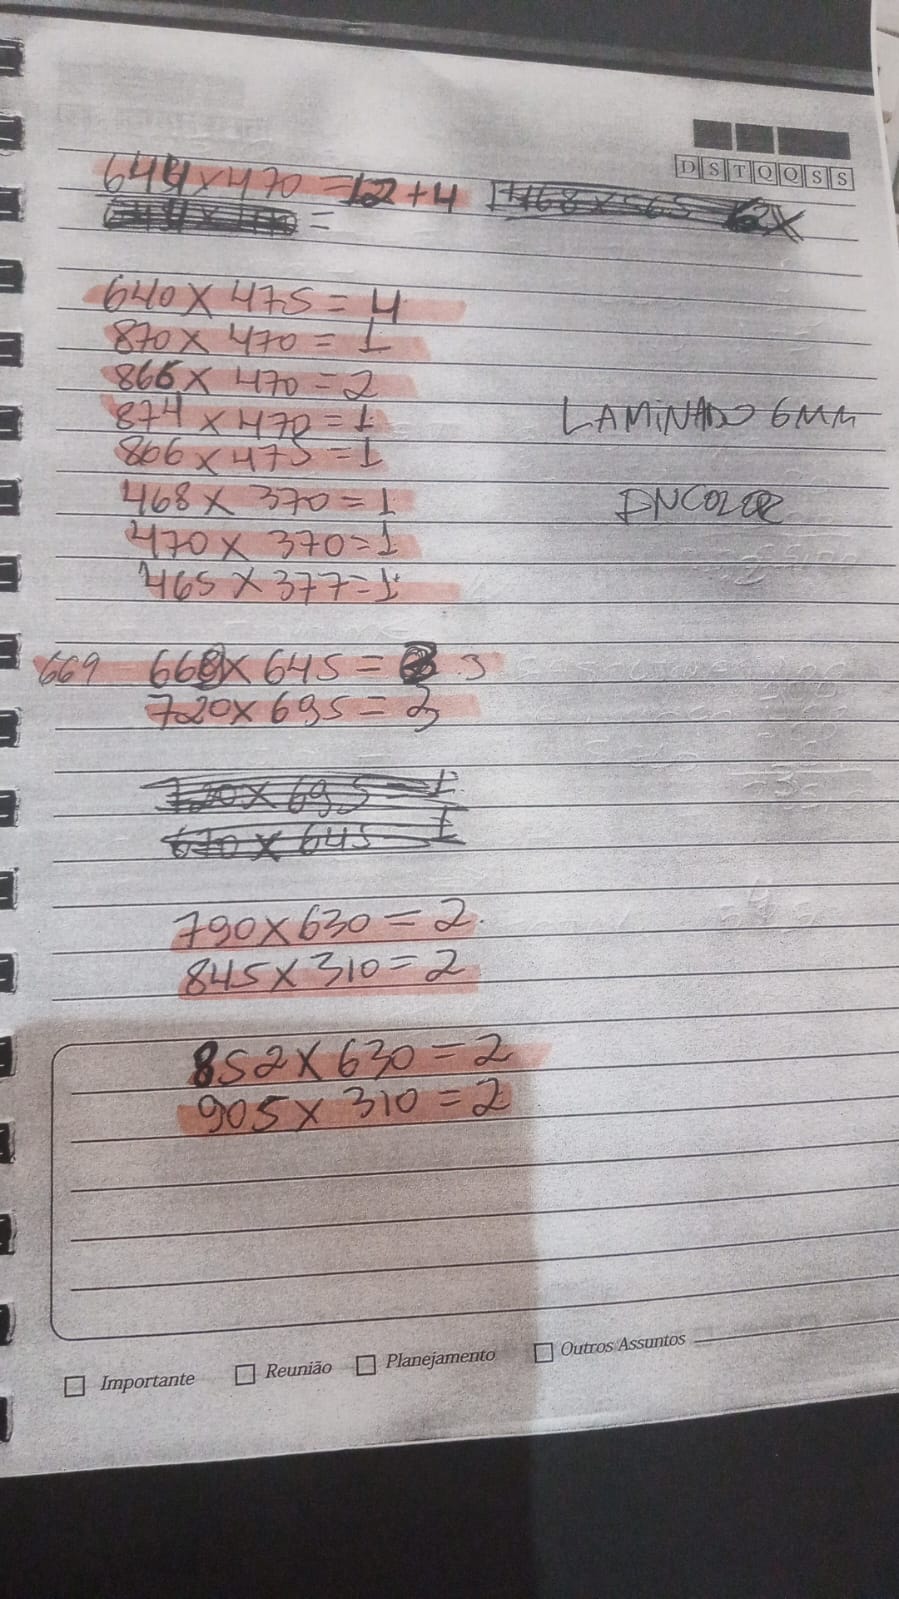 D S T Q Q S S
644x470 = 12 + 4
640 x 475 = 4
870 x 470 = 1
866 x 470 = 2
874 x 470 = 1
LAMINADO 6MM
866 x 475 = 1
468 x 370 = 1
INCOLOR
470 x 370 = 1
465 x 377 = 1
669 668 x 645 = 3
720 x 695 = 3
720 x 695 = 1
670 x 645 1
790 x 630 = 2
845 x 310 = 2
852 x 630 = 2
905 x 310 = 2
Importante Reunião Planejamento Outros Assuntos